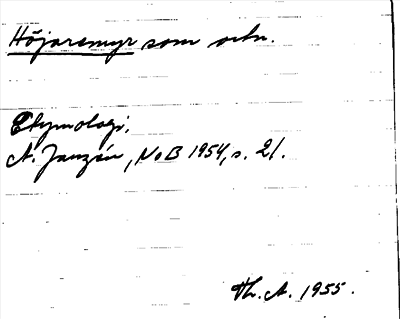 Höjaremyr som ortn.
Etymologi.
A. Janzén, NoB 1954, s. 21.
Th. A. 1955.